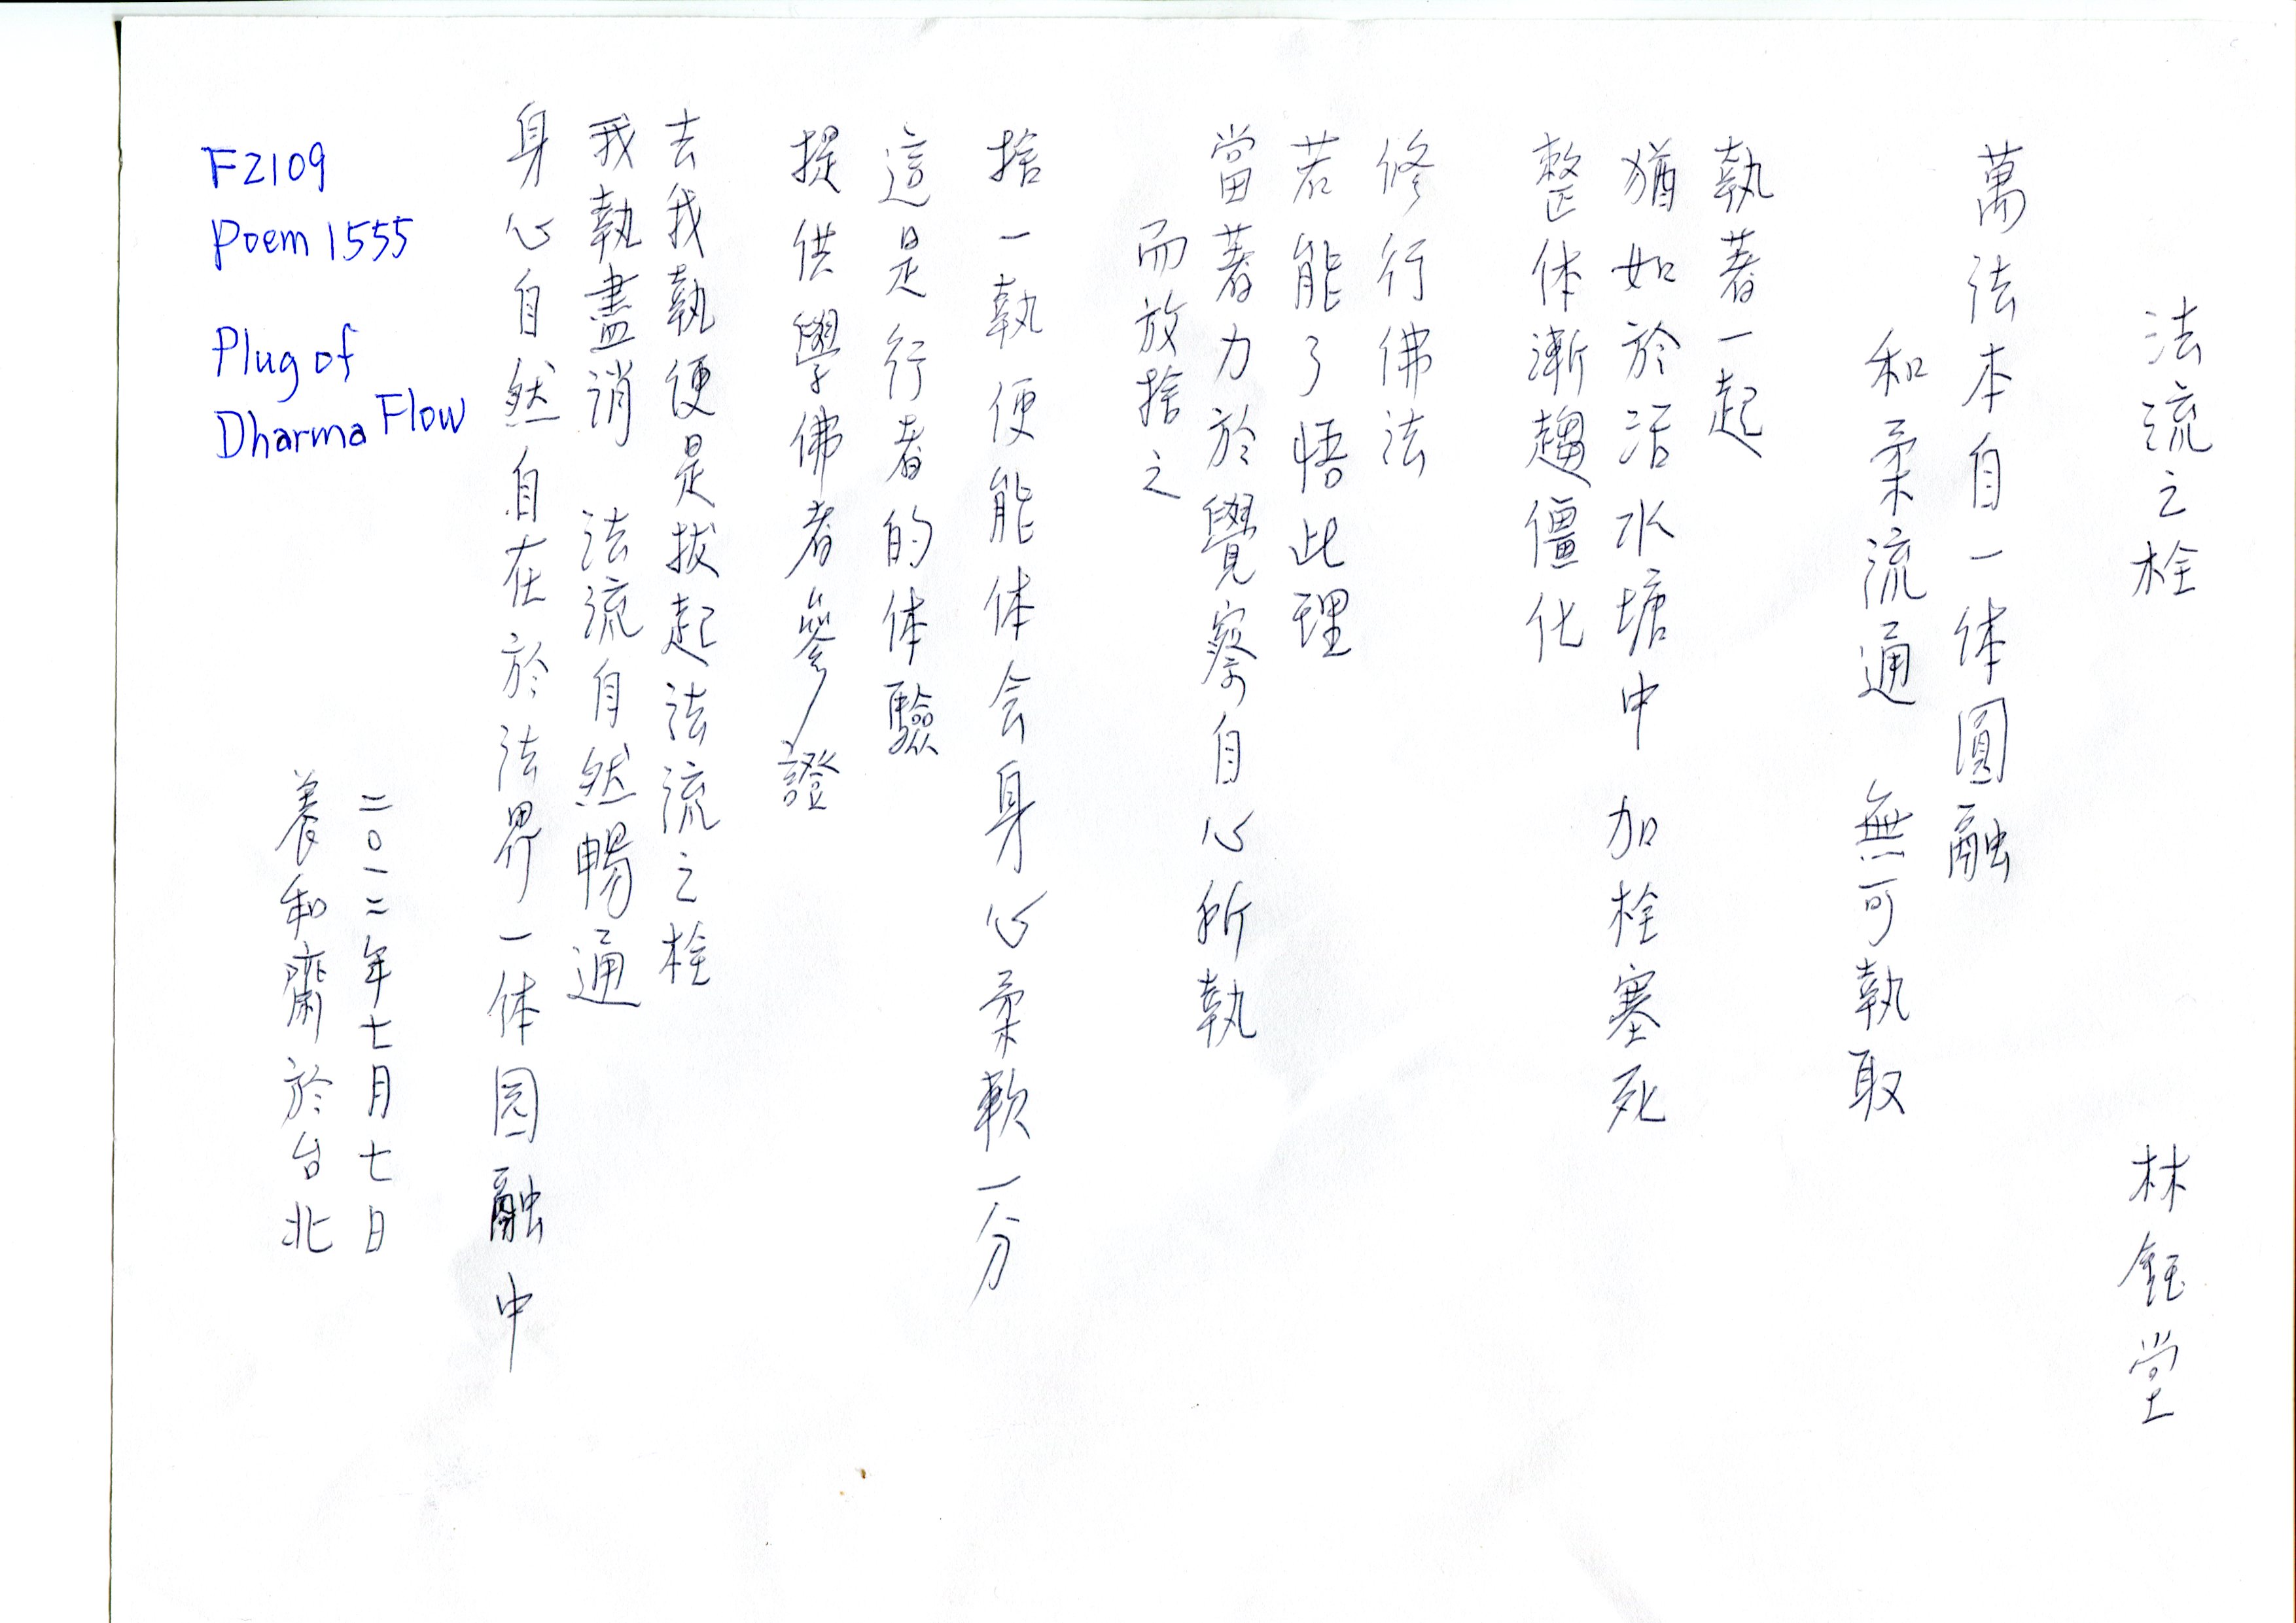 法流之栓 林鈺堂
萬法本自一体圓融
和柔流通 無可執取
執著一起
猶如於活水塘中 加栓塞死
整体漸趨僵化
修行佛法
若能了悟此理
當著力於覺察自心所執
而放捨之
捨一執便能体会身心柔軟一分
這是行者的体驗
提供學佛者參證
去我執便是拔起法流之栓
我執盡消 法流自然暢通
身心自然自在於法界一体园融中
二〇一二年七月七日
養和齋於台北
F2109
Poem 1555
Plug of
Dharma Flow